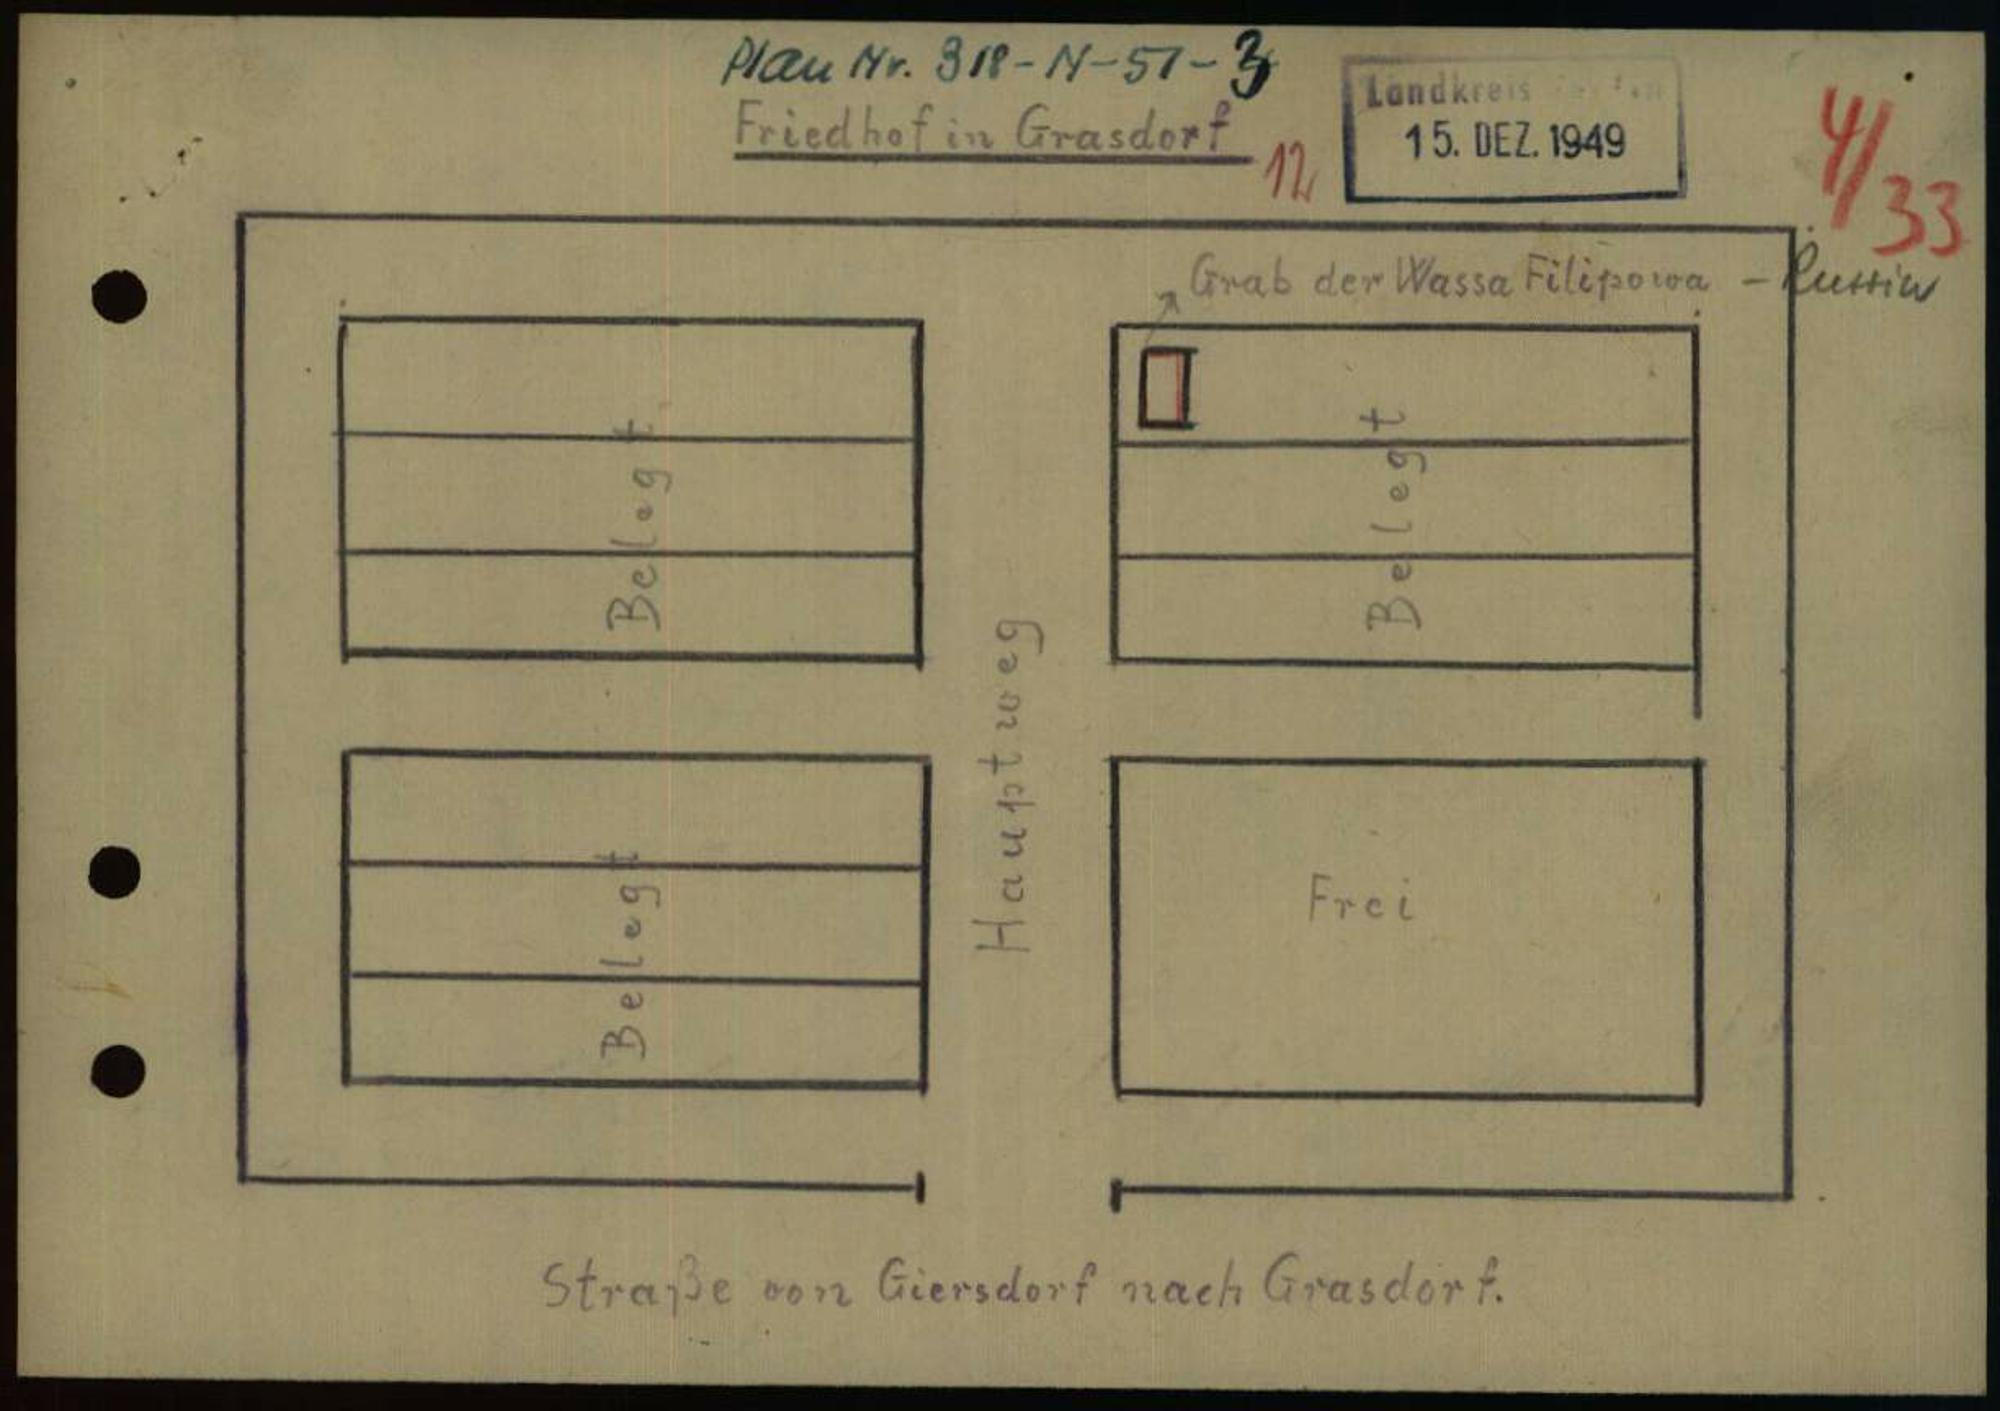 Plan Nr. 318-N-51-3
Friedhof in Grasdorf
12
Landkreis
15. DEZ. 1949
4/33
Grab der Wassa Filipowa - Russin
Belegt
Belegt
Hauptweg
Belegt
Frei
Straße von Giersdorf nach Grasdorf.